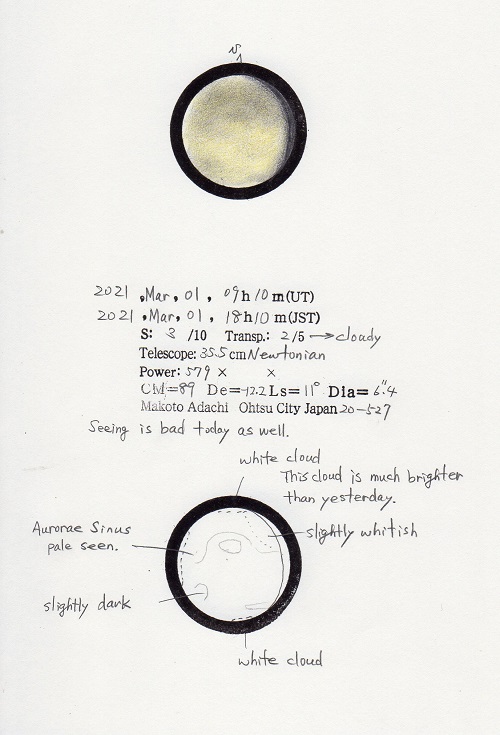 N
2021 , Mar, 01 , 09h 10 m(UT)
2021 , Mar, 01 , 18h 10 m(JST)
S: 3 /10 Transp.: 2/5 → cloudy
Telescope: 35.5 cm Newtonian
Power: 579 × ×
CM=89 De=-12.2 Ls=11° Dia=6"4
Makoto Adachi Ohtsu City Japan 20-527
Seeing is bad today as well.
white cloud
This cloud is much brighter
than yesterday.
Aurorae Sinus
pale seen.
slightly whitish
slightly dark
white cloud